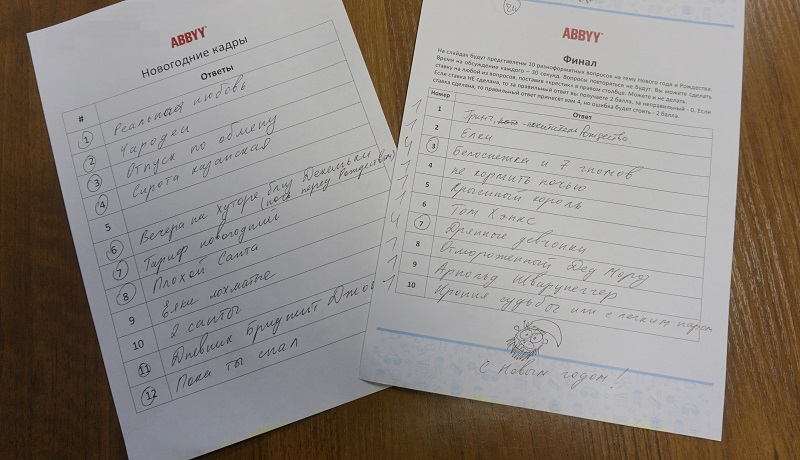 ABBYY
Новогодние кадры
# Ответы
1 Реальная любовь
2 Чародеи
3 Отпуск по обмену
4 Сирота казанская
5
6 Вечера на хуторе близ Диканьки (ночь перед Рождеством)
7 Тариф новогодний
8 Плохой Санта
9 Ёлки лохматые
10 2 санты
11 Дневник Бриджит Джонс
12 Пока ты спал
ABBYY
Финал
На слайдах будут представлены 10 разноформатных вопросов на тему Нового года и Рождества.
Время на обсуждение каждого – 30 секунд. Вопросы повторяться не будут. Вы можете сделать
ставку на любой из вопросов, поставив «крестик» в правом столбце. Можете и не делать.
Если ставка НЕ сделана, то за правильный ответ вы получаете 2 балла, за неправильный - 0. Если
ставка сделана, то правильный ответ принесет вам 4, но ошибка будет стоить - 2 балла.
Номер Ответ
1 Гринч, похититель Рождества
2 Елки
3 Белоснежка и 7 гномов
4 не кормить ночью
5 Крысиный король
6 Том Хэнкс
7 Дрянные девчонки
8 Отмороженный Дед Мороз
9 Арнольд Шварцнеггер
10 Ирония судьбы или с легким паром
С Новым годом!